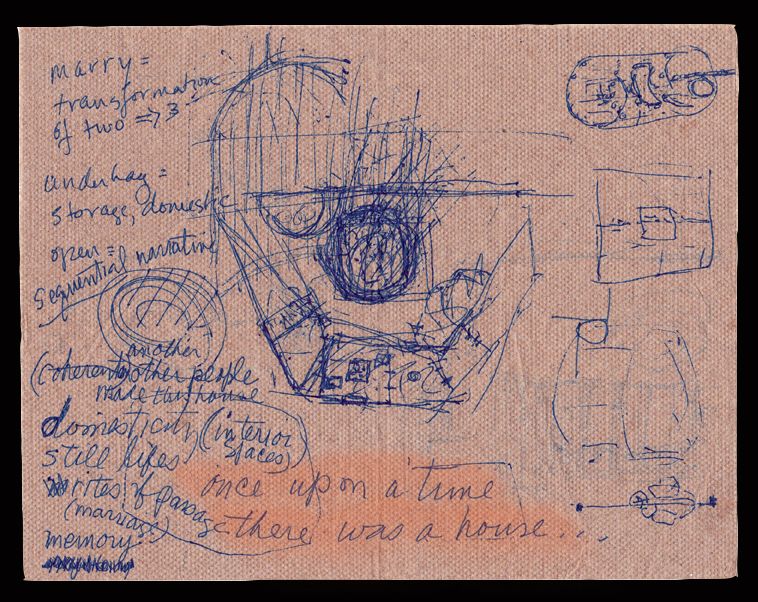 marry =
transformation
of two => 3
underhay =
storage, domestic
open =
sequential narrative
another
(coherent other people
made this house
domesticity (interior
still lifes spaces)
rites of passage
(marriage)
memory
once upon a time
there was a house...